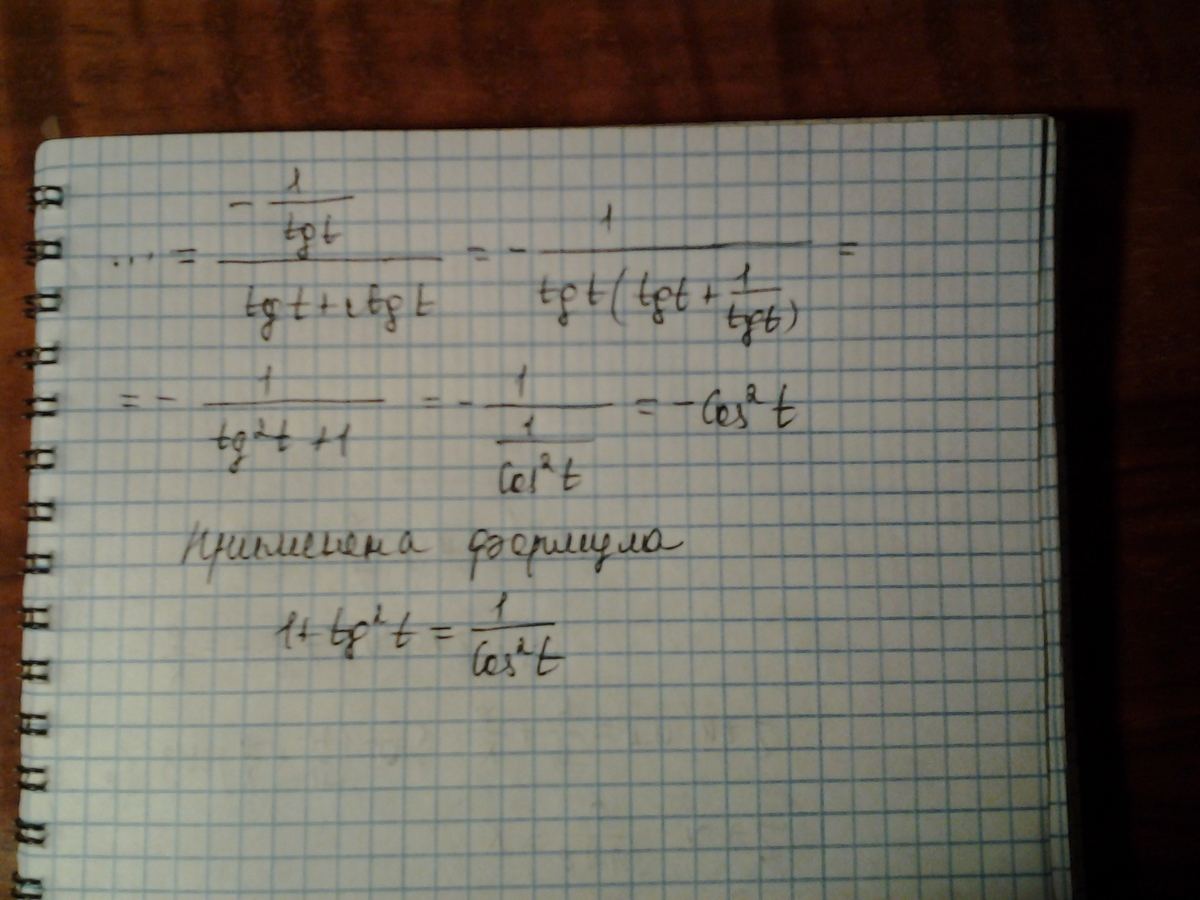 ... = (-1/tgt)/(tgt+ctgt) = - 1/(tgt(tgt+1/tgt)) =
= - 1/(tg²t+1) = - 1/(1/Cos²t) = -Cos²t
Применена формула
1+tg²t = 1/Cos²t